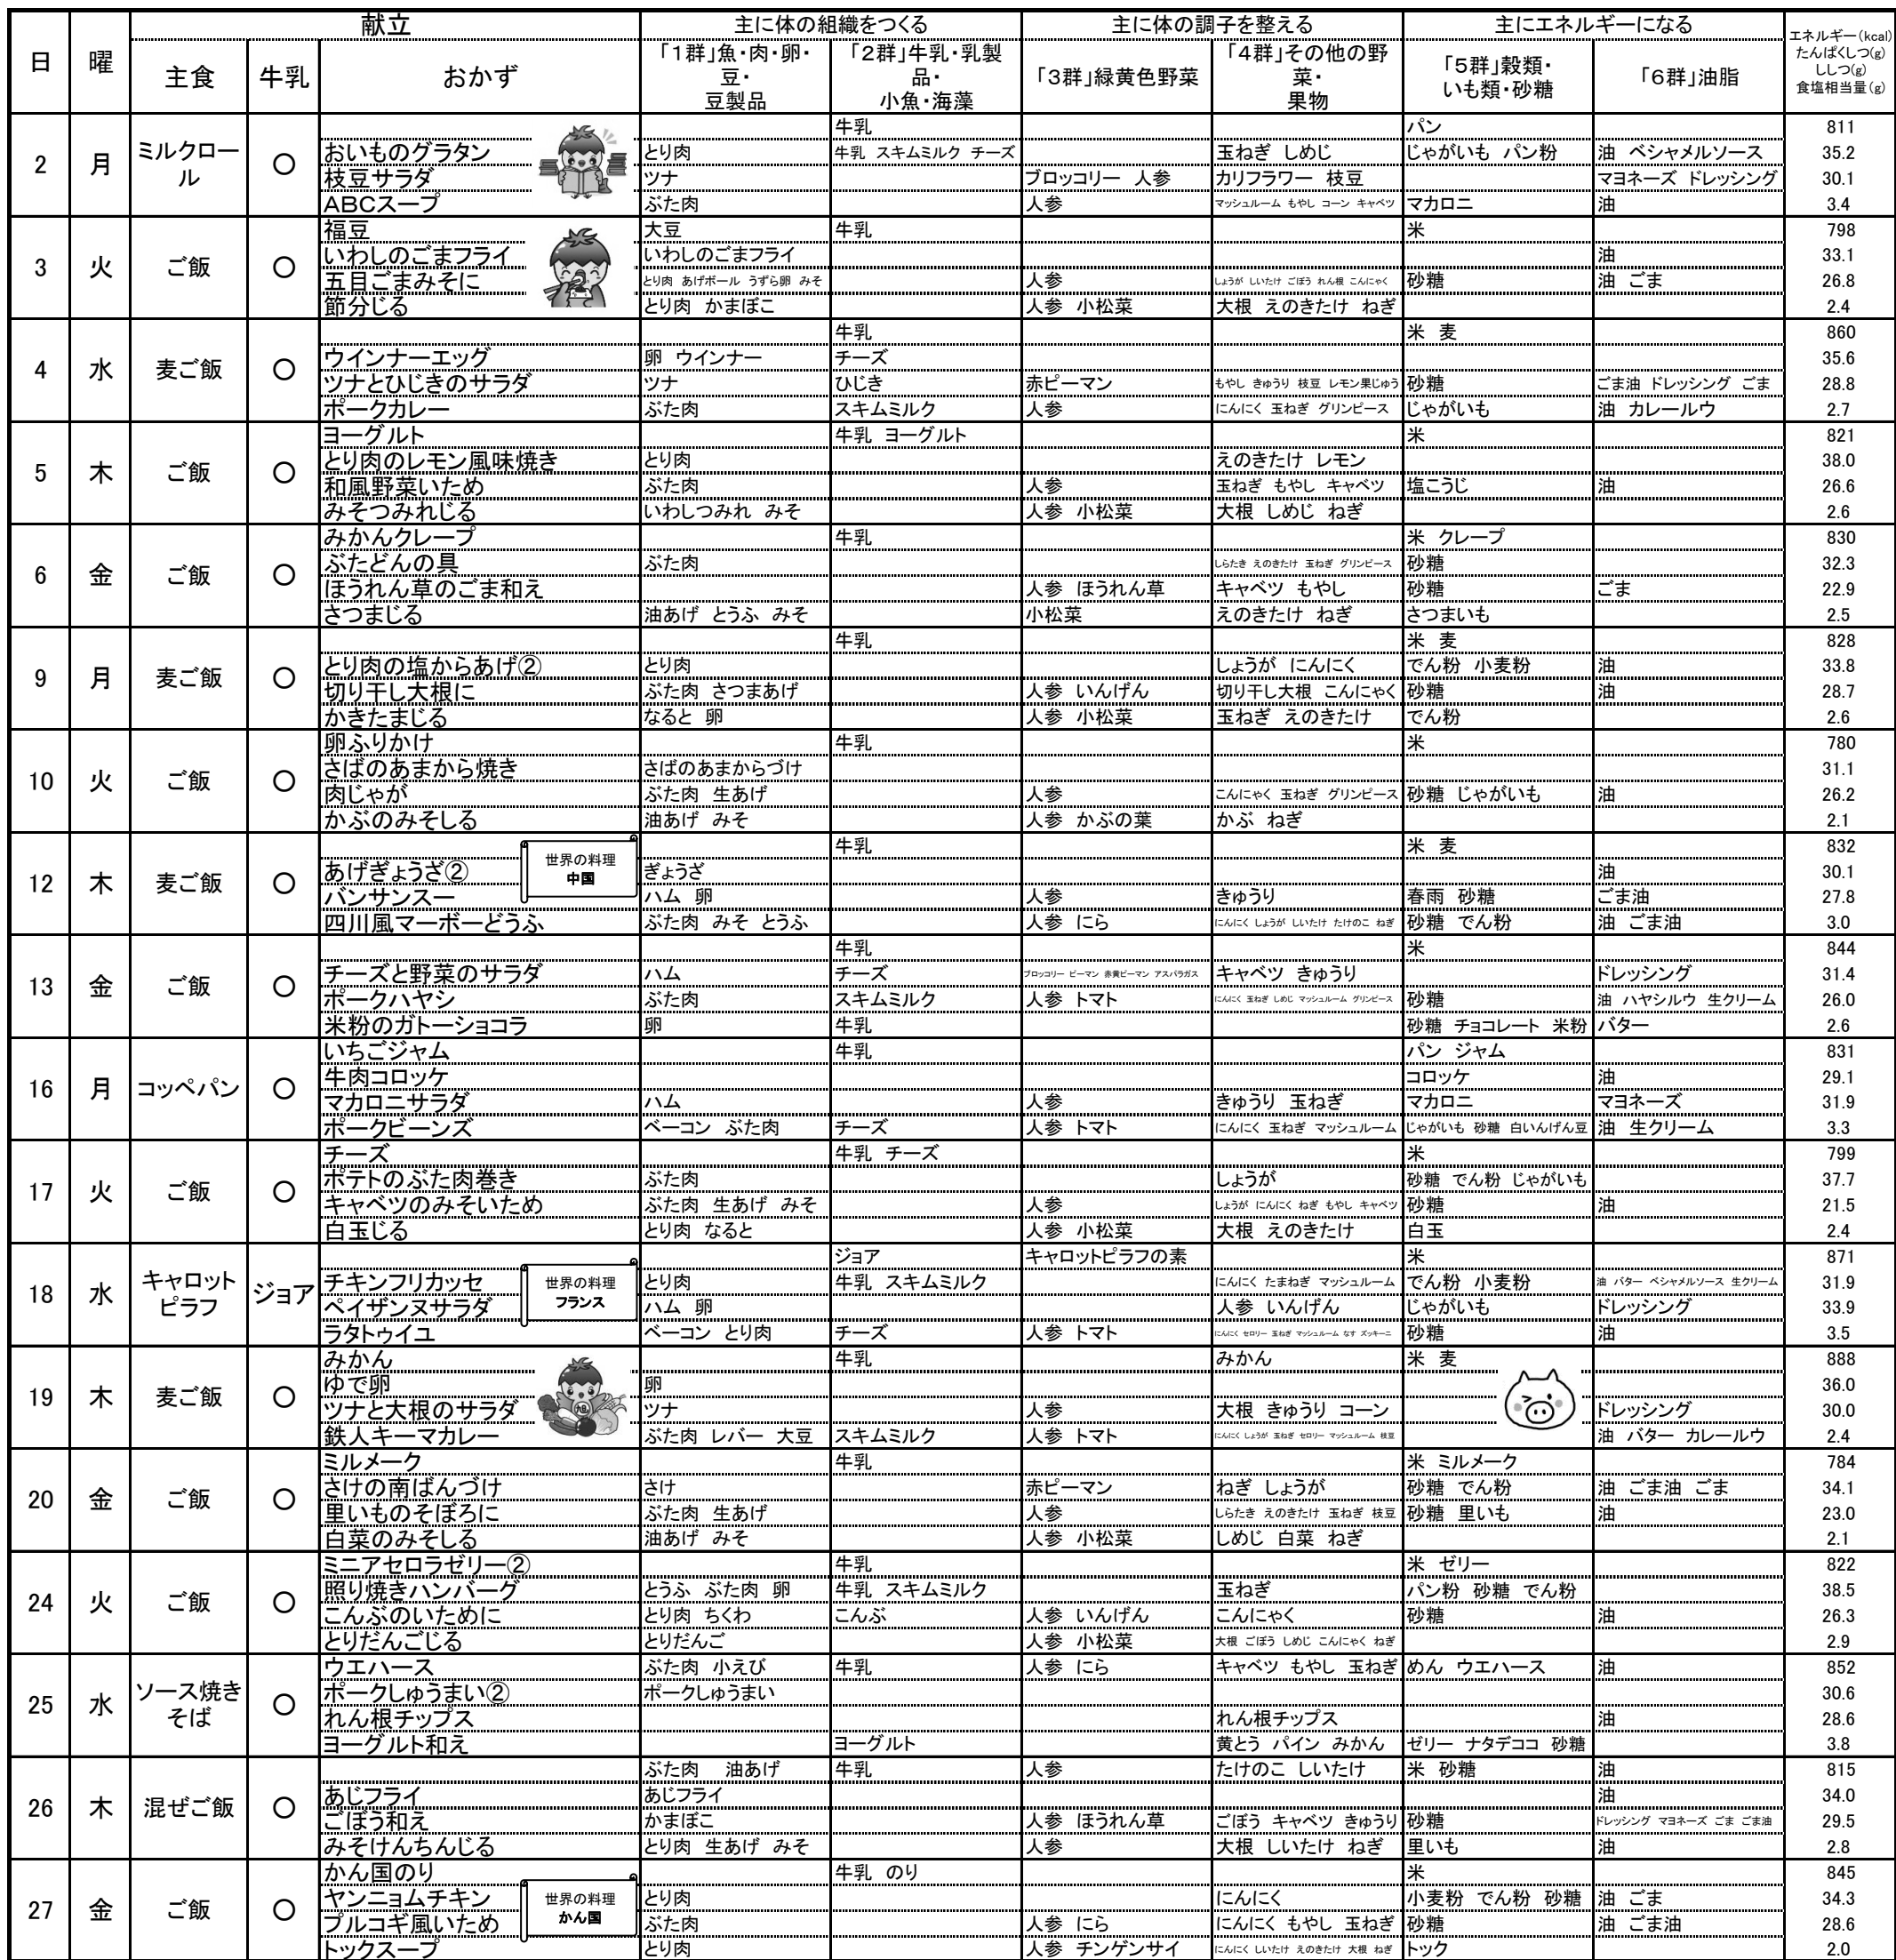 献立 主に体の組織をつくる 主に体の調子を整える 主にエネルギーになる
日 曜 主食 牛乳 おかず 「1群」魚・肉・卵・豆・豆製品 「2群」牛乳・乳製品・小魚・海藻 「3群」緑黄色野菜 「4群」その他の野菜・果物 「5群」穀類・いも類・砂糖 「6群」油脂 エネルギー(kcal) たんぱくしつ(g) ししつ(g) 食塩相当量(g)
2 月 ミルクロール ○
牛乳 パン 811
おいものグラタン とり肉 牛乳 スキムミルク チーズ 玉ねぎ しめじ じゃがいも パン粉 油 ベシャメルソース 35.2
枝豆サラダ ツナ ブロッコリー 人参 カリフラワー 枝豆 マヨネーズ ドレッシング 30.1
ABCスープ ぶた肉 人参 マッシュルーム もやし コーン キャベツ マカロニ 油 3.4
3 火 ご飯 ○
福豆 大豆 牛乳 米 798
いわしのごまフライ いわしのごまフライ 油 33.1
五目ごまみそに とり肉 あげボール うずら卵 みそ 人参 しょうが しいたけ ごぼう れん根 こんにゃく 砂糖 油 ごま 26.8
節分じる とり肉 かまぼこ 人参 小松菜 大根 えのきたけ ねぎ 2.4
4 水 麦ご飯 ○
牛乳 米 麦 860
ウインナーエッグ 卵 ウインナー チーズ 35.6
ツナとひじきのサラダ ツナ ひじき 赤ピーマン もやし きゅうり 枝豆 レモン果じゅう 砂糖 ごま油 ドレッシング ごま 28.8
ポークカレー ぶた肉 スキムミルク 人参 にんにく 玉ねぎ グリンピース じゃがいも 油 カレールウ 2.7
5 木 ご飯 ○
ヨーグルト 牛乳 ヨーグルト 米 821
とり肉のレモン風味焼き とり肉 えのきたけ レモン 38.0
和風野菜いため ぶた肉 人参 玉ねぎ もやし キャベツ 塩こうじ 油 26.6
みそつみれじる いわしつみれ みそ 人参 小松菜 大根 しめじ ねぎ 2.6
6 金 ご飯 ○
みかんクレープ 牛乳 米 クレープ 830
ぶたどんの具 ぶた肉 しらたき えのきたけ 玉ねぎ グリンピース 砂糖 32.3
ほうれん草のごま和え 人参 ほうれん草 キャベツ もやし 砂糖 ごま 22.9
さつまじる 油あげ とうふ みそ 小松菜 えのきたけ ねぎ さつまいも 2.5
9 月 麦ご飯 ○
牛乳 米 麦 828
とり肉の塩からあげ② とり肉 しょうが にんにく でん粉 小麦粉 油 33.8
切り干し大根に ぶた肉 さつまあげ 人参 いんげん 切り干し大根 こんにゃく 砂糖 油 28.7
かきたまじる なると 卵 人参 小松菜 玉ねぎ えのきたけ でん粉 2.6
10 火 ご飯 ○
卵ふりかけ 牛乳 米 780
さばのあまから焼き さばのあまからづけ 31.1
肉じゃが ぶた肉 生あげ 人参 こんにゃく 玉ねぎ グリンピース 砂糖 じゃがいも 油 26.2
かぶのみそしる 油あげ みそ 人参 かぶの葉 かぶ ねぎ 2.1
12 木 麦ご飯 ○
世界の料理 中国
牛乳 米 麦 832
あげぎょうざ② ぎょうざ 油 30.1
バンサンスー ハム 卵 人参 きゅうり 春雨 砂糖 ごま油 27.8
四川風マーボーどうふ ぶた肉 みそ とうふ 人参 にら にんにく しょうが しいたけ たけのこ ねぎ 砂糖 でん粉 油 ごま油 3.0
13 金 ご飯 ○
牛乳 米 844
チーズと野菜のサラダ ハム チーズ ブロッコリー ピーマン 赤黄ピーマン アスパラガス キャベツ きゅうり ドレッシング 31.4
ポークハヤシ ぶた肉 スキムミルク 人参 トマト にんにく 玉ねぎ しめじ マッシュルーム グリンピース 砂糖 油 ハヤシルウ 生クリーム 26.0
米粉のガトーショコラ 卵 牛乳 砂糖 チョコレート 米粉 バター 2.6
16 月 コッペパン ○
いちごジャム 牛乳 パン ジャム 831
牛肉コロッケ コロッケ 油 29.1
マカロニサラダ ハム 人参 きゅうり 玉ねぎ マカロニ マヨネーズ 31.9
ポークビーンズ ベーコン ぶた肉 チーズ 人参 トマト にんにく 玉ねぎ マッシュルーム じゃがいも 砂糖 白いんげん豆 油 生クリーム 3.3
17 火 ご飯 ○
チーズ 牛乳 チーズ 米 799
ポテトのぶた肉巻き ぶた肉 しょうが 砂糖 でん粉 じゃがいも 37.7
キャベツのみそいため ぶた肉 生あげ みそ 人参 しょうが にんにく ねぎ もやし キャベツ 砂糖 油 21.5
白玉じる とり肉 なると 人参 小松菜 大根 えのきたけ 白玉 2.4
18 水 キャロットピラフ ジョア
世界の料理 フランス
ジョア キャロットピラフの素 米 871
チキンフリカッセ とり肉 牛乳 スキムミルク にんにく たまねぎ マッシュルーム でん粉 小麦粉 油 バター ベシャメルソース 生クリーム 31.9
ペイザンヌサラダ ハム 卵 人参 いんげん じゃがいも ドレッシング 33.9
ラタトゥイユ ベーコン とり肉 チーズ 人参 トマト にんにく セロリー 玉ねぎ マッシュルーム なす ズッキーニ 砂糖 油 3.5
19 木 麦ご飯 ○
みかん 牛乳 みかん 米 麦 888
ゆで卵 卵 36.0
ツナと大根のサラダ ツナ 人参 大根 きゅうり コーン ドレッシング 30.0
鉄人キーマカレー ぶた肉 レバー 大豆 スキムミルク 人参 トマト にんにく しょうが 玉ねぎ セロリー マッシュルーム 枝豆 油 バター カレールウ 2.4
20 金 ご飯 ○
ミルメーク 牛乳 米 ミルメーク 784
さけの南ばんづけ さけ 赤ピーマン ねぎ しょうが 砂糖 でん粉 油 ごま油 ごま 34.1
里いものそぼろに ぶた肉 生あげ 人参 しらたき えのきたけ 玉ねぎ 枝豆 砂糖 里いも 油 23.0
白菜のみそしる 油あげ みそ 人参 小松菜 しめじ 白菜 ねぎ 2.1
24 火 ご飯 ○
ミニアセロラゼリー② 牛乳 米 ゼリー 822
照り焼きハンバーグ とうふ ぶた肉 卵 牛乳 スキムミルク 玉ねぎ パン粉 砂糖 でん粉 38.5
こんぶのいために とり肉 ちくわ こんぶ 人参 いんげん こんにゃく 砂糖 油 26.3
とりだんごじる とりだんご 人参 小松菜 大根 ごぼう しめじ こんにゃく ねぎ 2.9
25 水 ソース焼きそば ○
ウエハース ぶた肉 小えび 牛乳 人参 にら キャベツ もやし 玉ねぎ めん ウエハース 油 852
ポークしゅうまい② ポークしゅうまい 30.6
れん根チップス れん根チップス 油 28.6
ヨーグルト和え ヨーグルト 黄とう パイン みかん ゼリー ナタデココ 砂糖 3.8
26 木 混ぜご飯 ○
ぶた肉 油あげ 牛乳 人参 たけのこ しいたけ 米 砂糖 油 815
あじフライ あじフライ 油 34.0
ごぼう和え かまぼこ 人参 ほうれん草 ごぼう キャベツ きゅうり 砂糖 ドレッシング マヨネーズ ごま ごま油 29.5
みそけんちんじる とり肉 生あげ みそ 人参 大根 しいたけ ねぎ 里いも 油 2.8
27 金 ご飯 ○
世界の料理 かん国
かん国のり 牛乳 のり 米 845
ヤンニョムチキン とり肉 にんにく 小麦粉 でん粉 砂糖 油 ごま 34.3
プルコギ風いため ぶた肉 人参 にら にんにく もやし 玉ねぎ 砂糖 油 ごま油 28.6
トックスープ とり肉 人参 チンゲンサイ にんにく しいたけ えのきたけ 大根 ねぎ トック 2.0